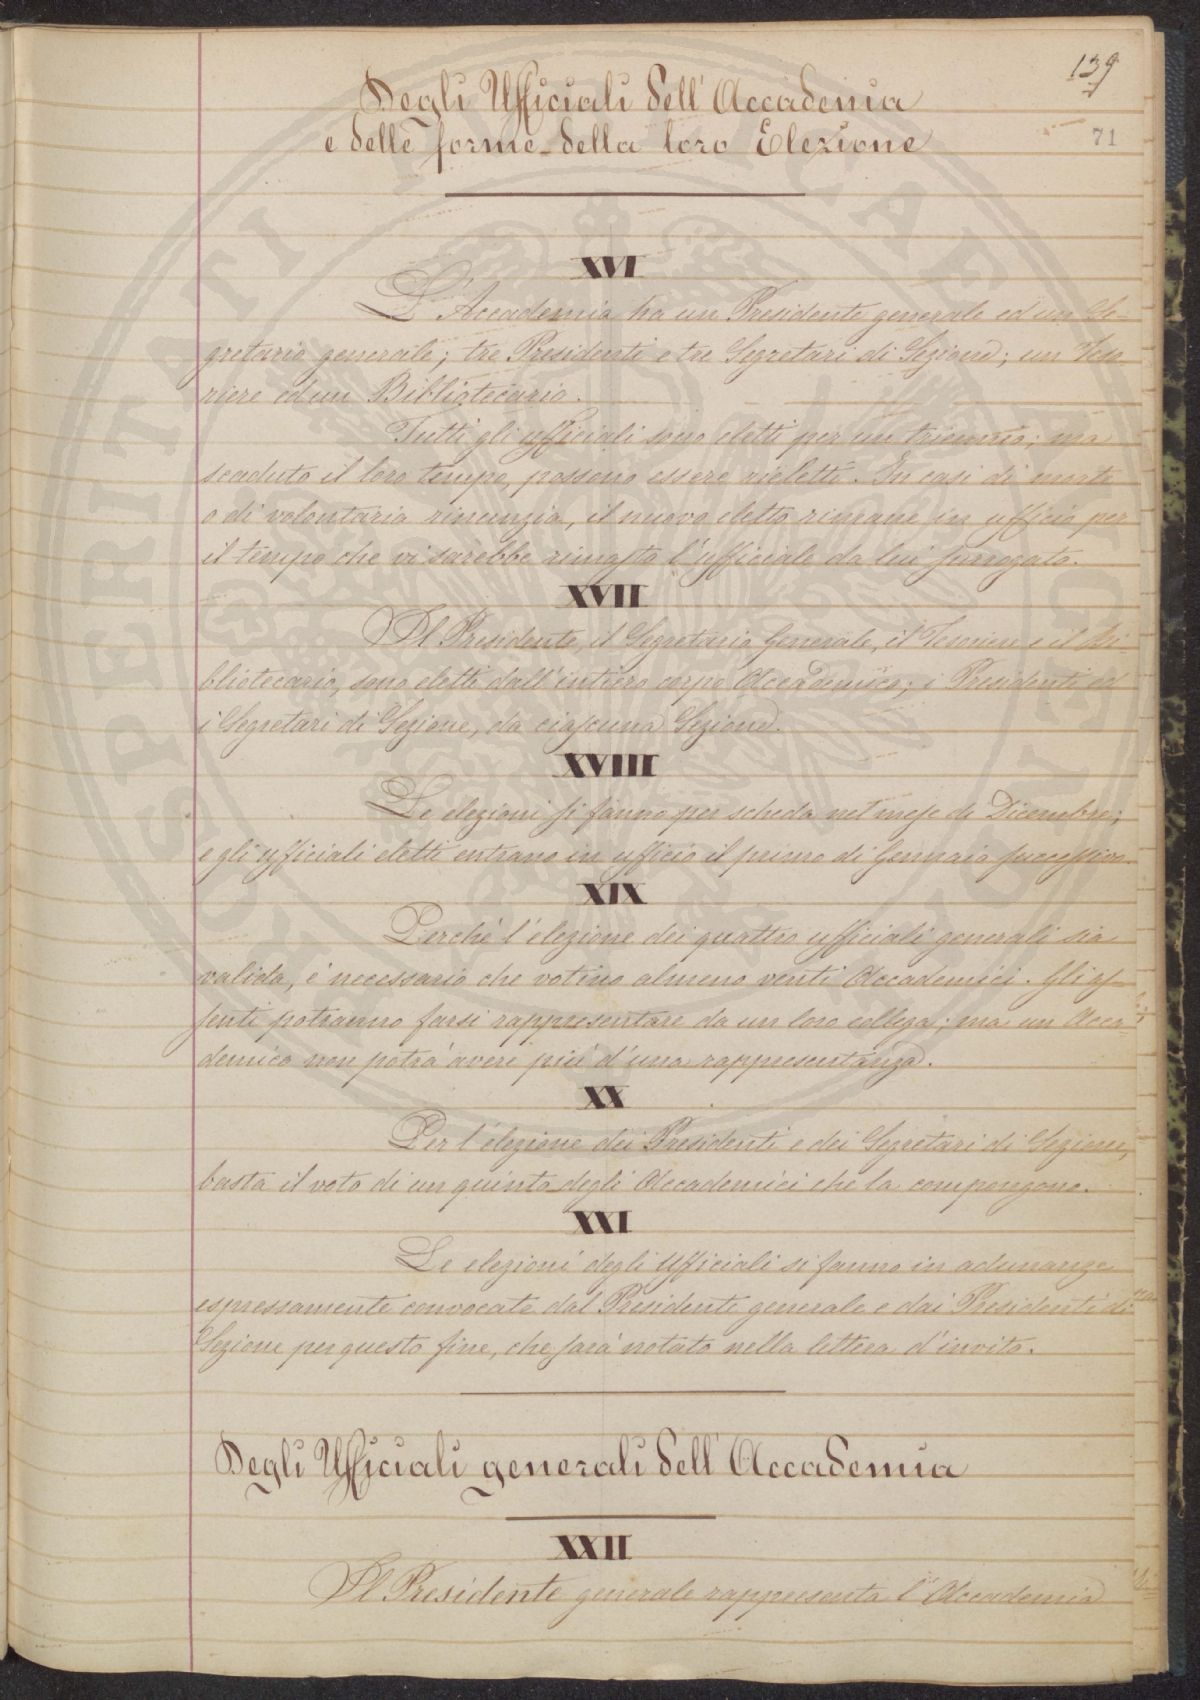 139
71
Degli Ufficiali dell' Accademia
e delle forme della loro Elezione
XVI
L' Accademia ha un Presidente generale ed un Se-
gretario generale; tre Presidenti e tre Segretari di Sezione; un Teso-
riere ed un Bibliotecario.
Tutti gli ufficiali sono eletti per un triennio; ma
scaduto il loro tempo, possono essere rieletti. In casi di morte
o di volontaria rinunzia, il nuovo eletto rimane in ufficio per
il tempo che vi sarebbe rimasto l'ufficiale da lui surrogato.
XVII
Il Presidente, il Segretario Generale, il Tesoriere e il Bi-
bliotecario, sono eletti dall' intiero corpo Accademico; i Presidenti ed
i Segretari di Sezione, da ciascuna Sezione.
XVIII
Le elezioni si fanno per scheda nel mese di Dicembre;
e gli ufficiali eletti entrano in ufficio il primo di Gennaio successivo.
XIX
Perché l' elezione dei quattro ufficiali generali sia
valida, è necessario che votino almeno venti Accademici. Gli as-
senti potranno farsi rappresentare da un loro collega; ma un Acca-
demico non potrà avere più d'una rappresentanza.
XX
Per l' elezione dei Presidenti e dei Segretari di Sezione,
basta il voto di un quinto degli Accademici che la compongono.
XXI
Le elezioni degli Ufficiali si fanno in adunanze
espressamente convocate dal Presidente generale e dai Presidenti di
Sezione per questo fine, che sarà notato nella lettera d'invito.
Degli Ufficiali generali dell' Accademia
XXII
Il Presidente generale rappresenta l' Accademia